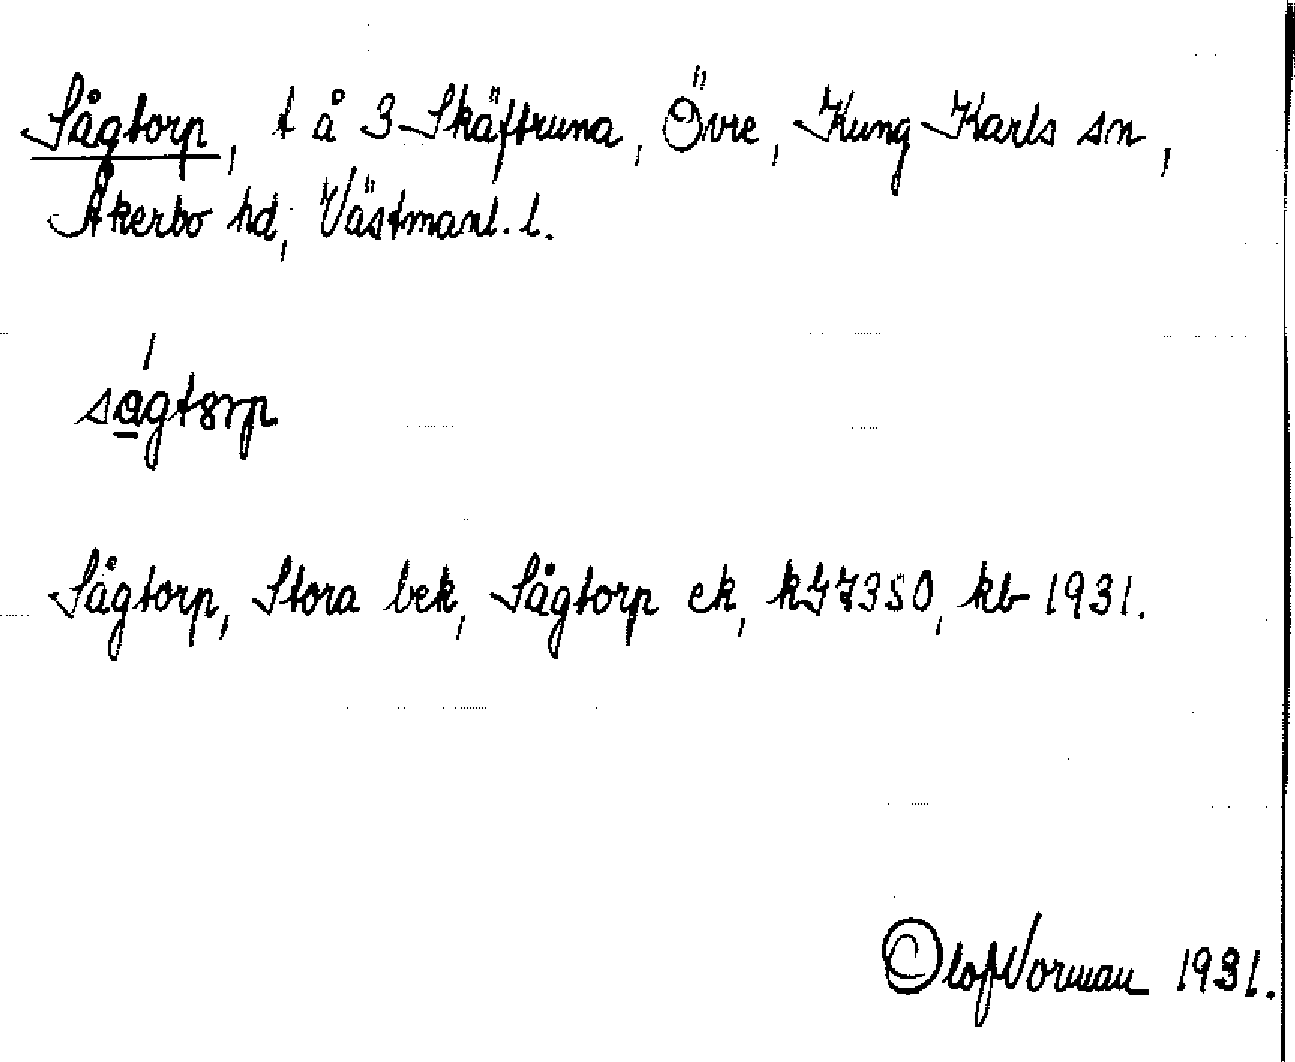 Sågtorp, t å 3 Skäftruna, Övre, Kung Karls sn,
Åkerbo hd, Västmanl. l.
ságtorp
Sågtorp, Stora bek, Sågtorp ek, kb 1931.
Olof Vorman 1931.